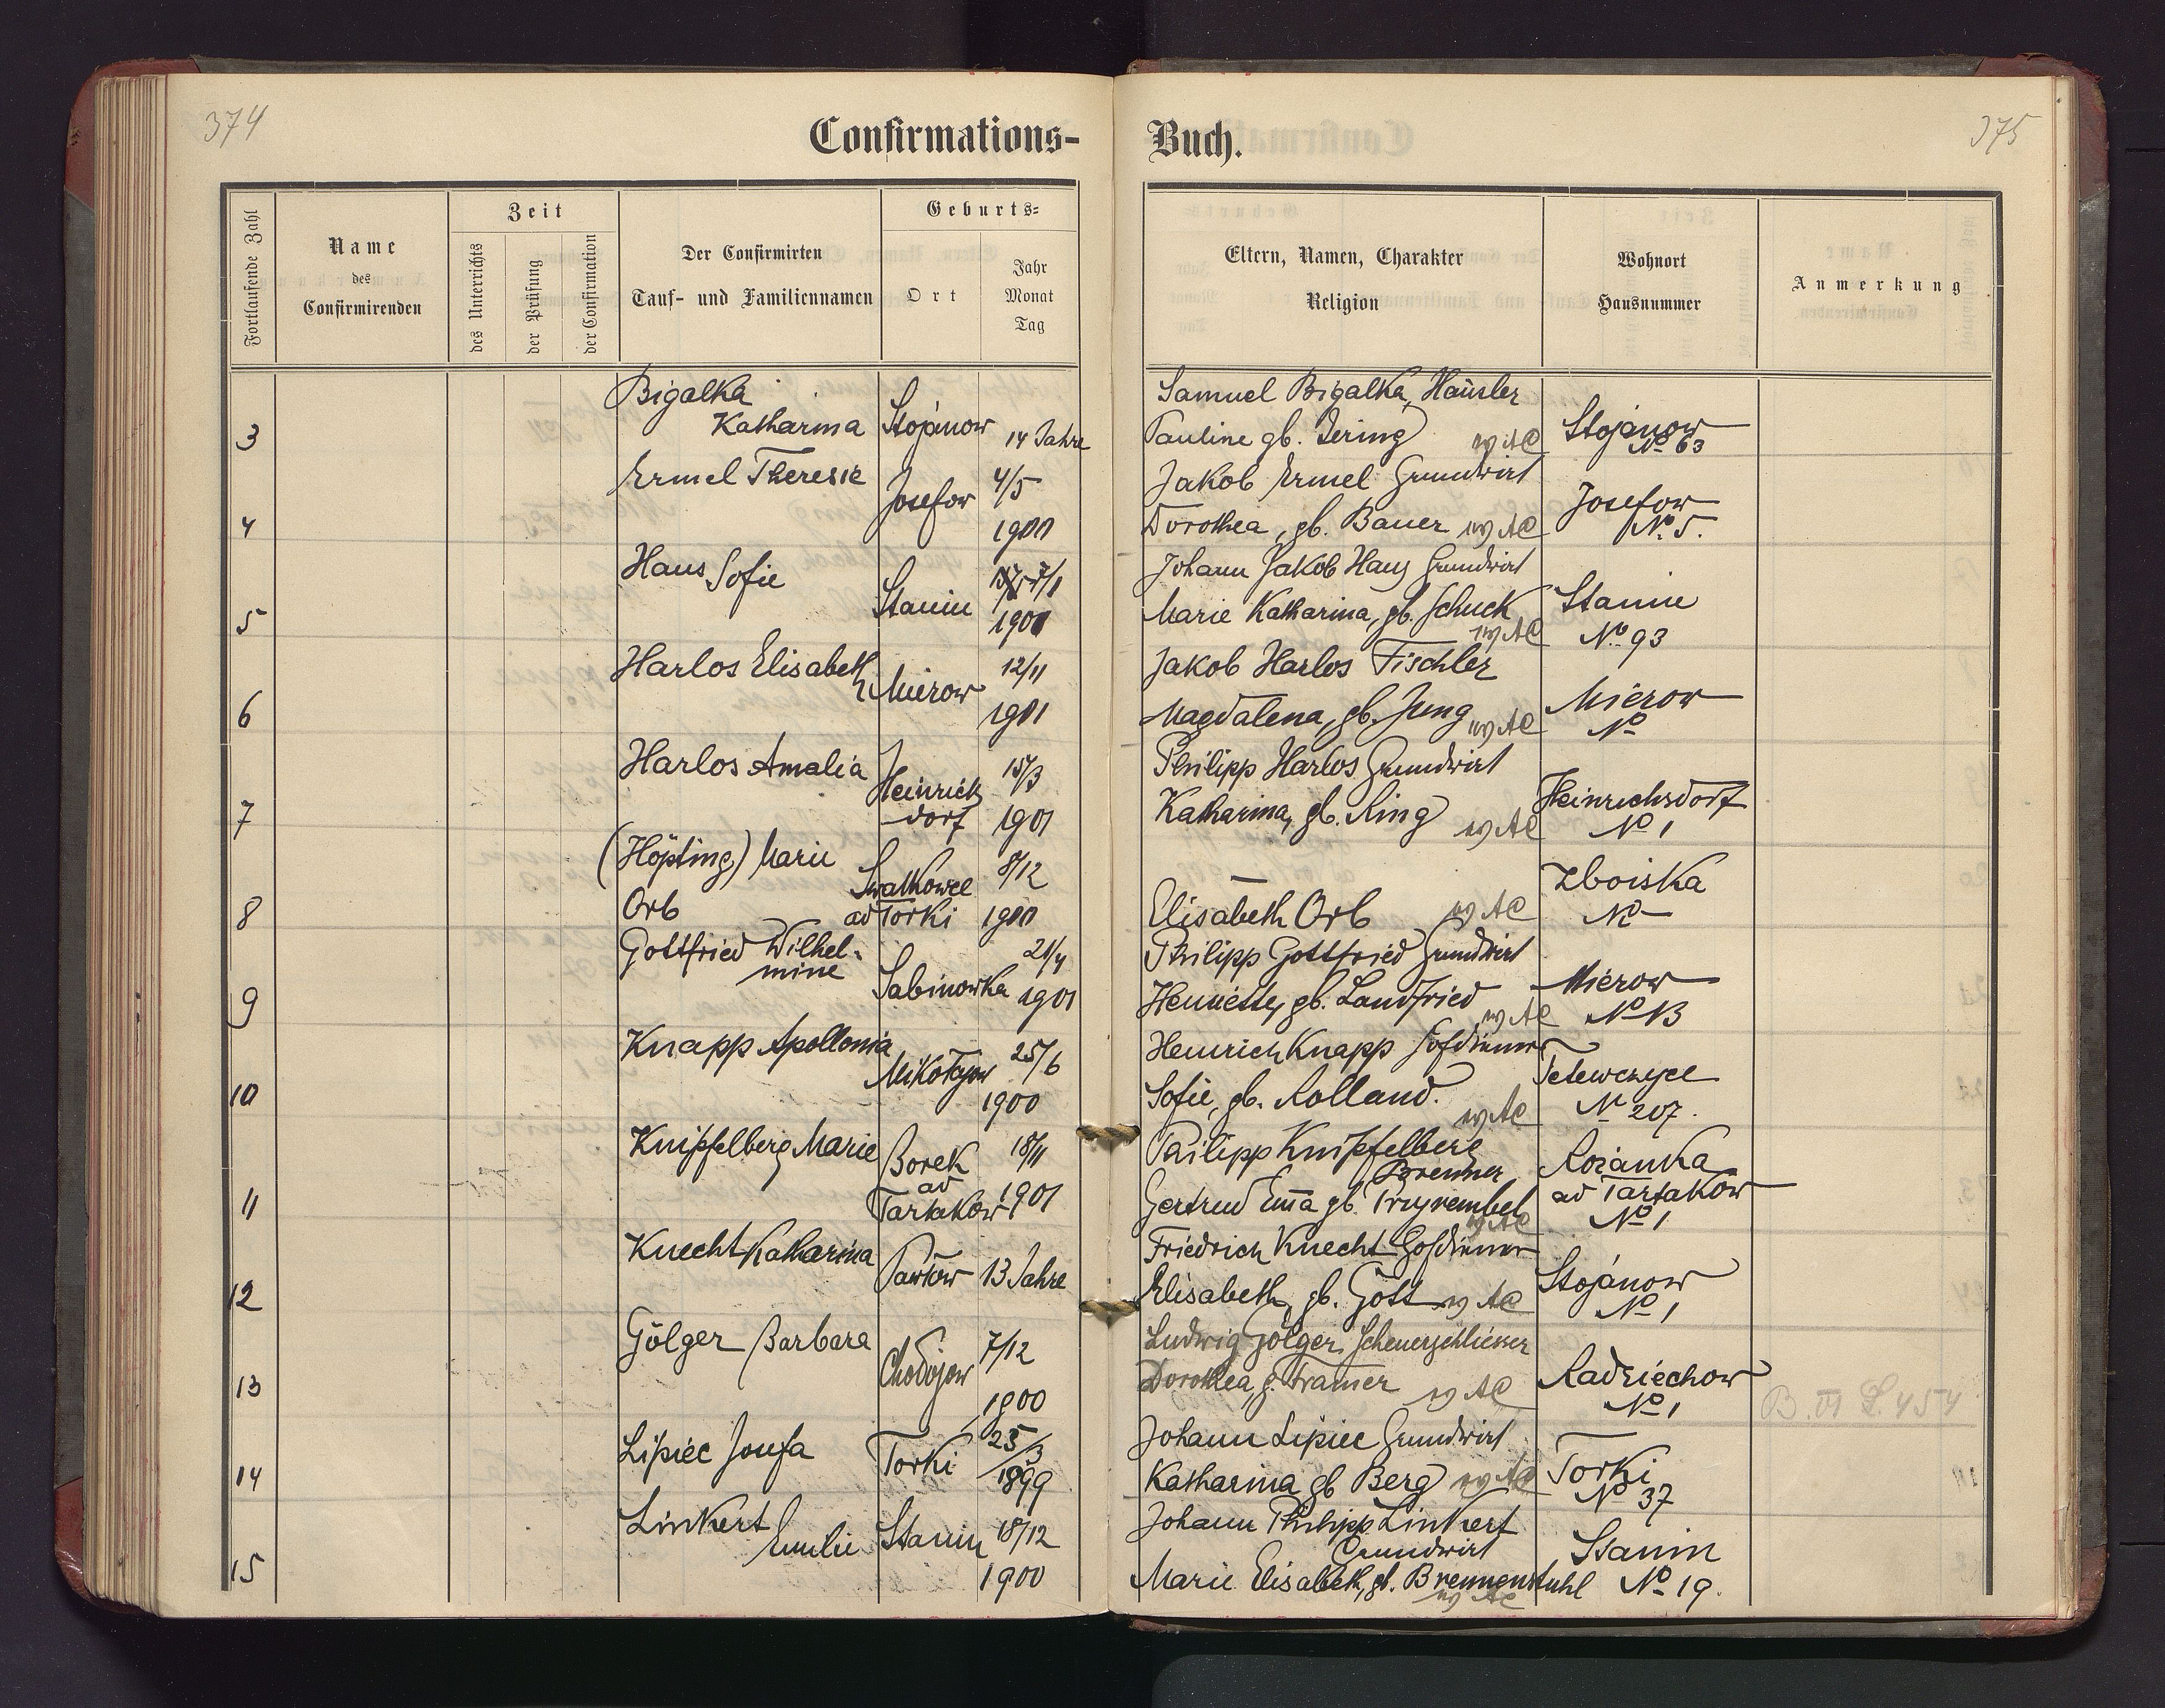 374
375
Confirmations-
Buch.
Fortlaufende Zahl
Name
des
Confirmirenden
Zeit
des Unterrichts
der Prüfung
der Confirmation
Der Confirmirten
Tauf- und Familiennamen
Geburts-
Ort
Jahr
Monat
Tag
Eltern, Namen, Charakter
Religion
Wohnort
Hausnummer
Anmerkung
3
Bigalka
Katharina
Stojanow
14 Jahre
Samuel Bigalka, Häusler
Pauline gb. Dering
ev AC
Stojanow
No 63
4
Ermel Therese
Josefow
4/5
1900
Jakob Ermel Grundwirt
Dorothea, gb. Bauer ev AC
Josefow
No. 5.
5
Haus Sofie
Stanin
7/1
1901
Johann Jakob Haus Grundwirt
Marie Katharina, gb. Schuck
ev AC
Stanin
No 93
6
Harlos Elisabeth
Mierow
12/11
1901
Jakob Harlos Tischler
Magdalena, gb. Jung ev AC
Mierow
No
7
Harlos Amalia
Heinrichs
dorf
15/3
1901
Philipp Harlos Grundwirt
Katharina, gb. Ring ev AC
Heinrichsdorf
No 1
8
(Höpting) Marie
Orb
ad Torki
8/12
1900
Elisabeth Orb ev AC
Zboiska
No
9
Gottfried Wilhel-
mine
Sabinowka
21/4
1901
Philipp Gottfried Grundwirt
Henriette, gb. Landfried
ev AC
Mierow
No 13
10
Knapp Apollonia
Mikołajow
25/6
1900
Heinrich Knapp Hofdiener
Sofie, gb. Rolland.
ev AC
Tetewczyce
No 207.
11
Knipfelberg Marie
Borek
ad
Tartakow
18/11
1901
Philipp Knipfelberg
Brenner
Gertrud Em̅a gb. Przyrembel
ev AC
Rozanka
ad Tartakow
No 1
12
Knecht Katharina
Pawłow
13 Jahre
Friedrich Knecht Hofdiener
Elisabeth, gb. Gött ev AC
Stojanow
No 1
13
Gölger Barbara
Chodojow
7/12
1900
Ludwig Gölger, Scheuerschliesser
Dorothea, g. Kramer ev AC
Radziechow
No 1
B. VI S. 454
14
Lipiec Josefa
Torki
25/3
1899
Johann Lipiec Grundwirt
Katharina gb Berg ev AC
Torki
No 37
15
Linkert
Emilie
Stanin
18/12
1900
Johann Philipp Linkert
Grundwirt
Marie Elisabeth, gb. Brennenstuhl
ev AC
Stanin
No 19.